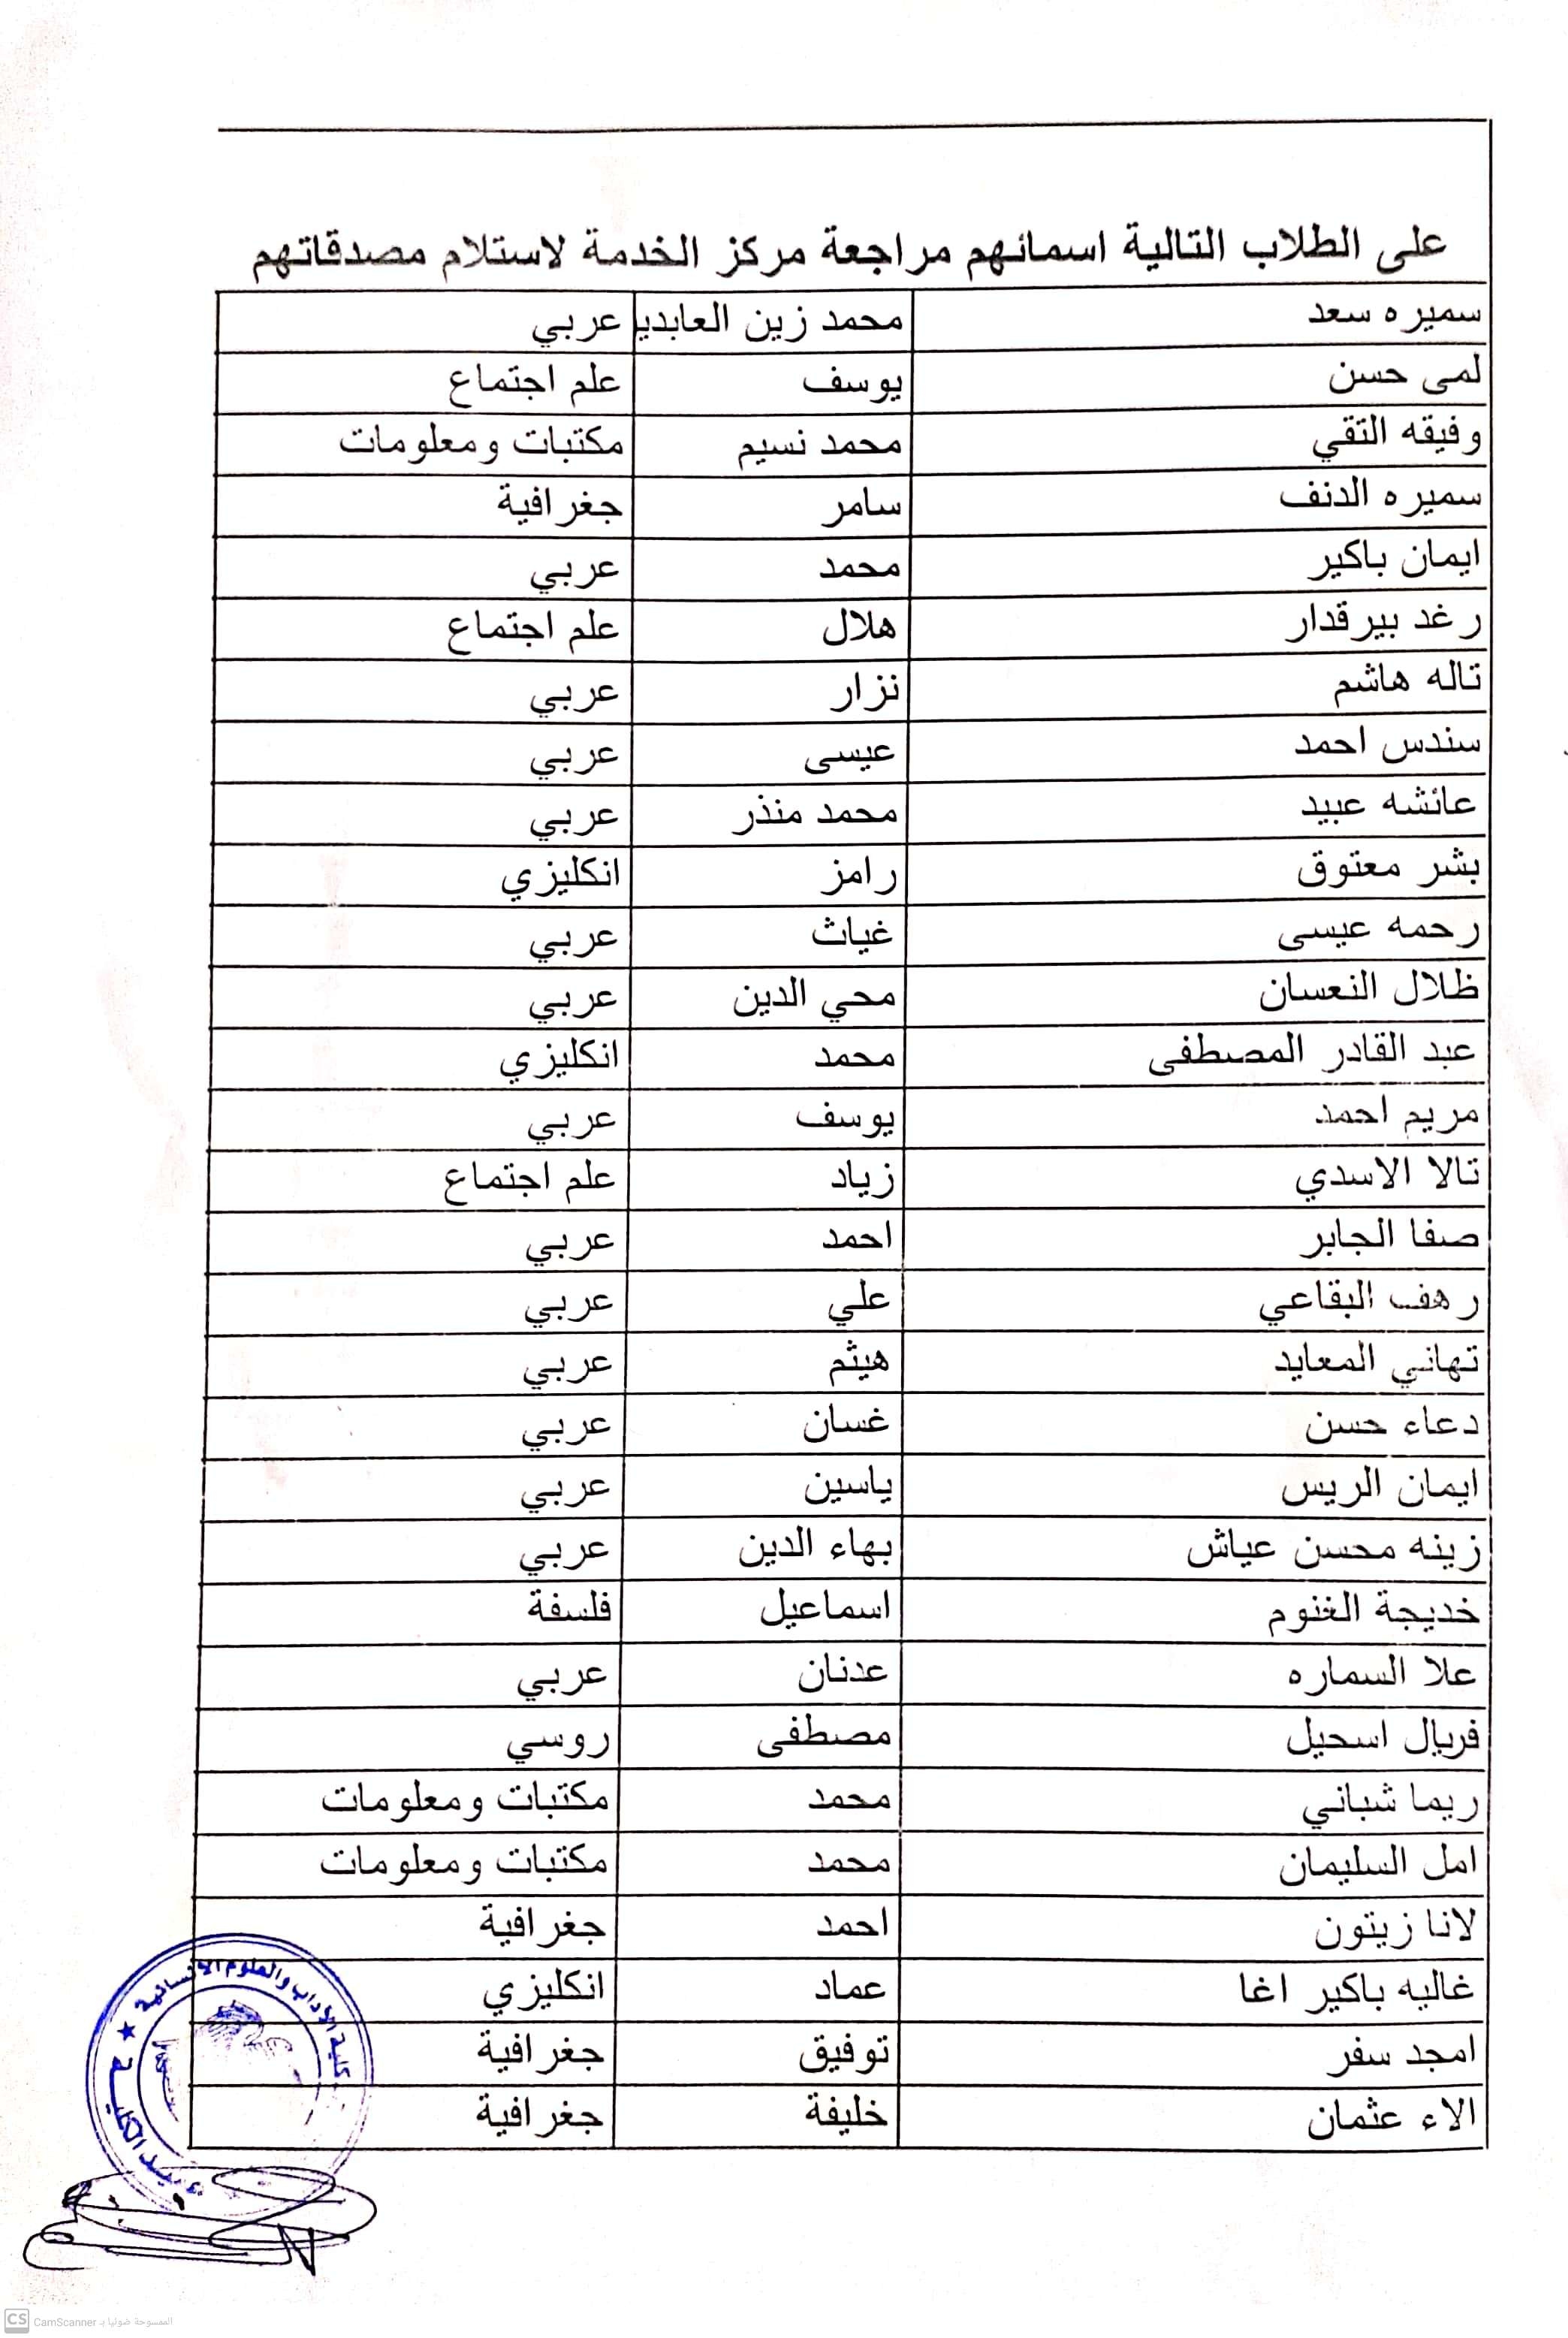 على الطلاب التالية اسمائهم مراجعة مركز الخدمة لاستلام مصدقاتهم
سميره سعد محمد زين العابدي عربي
لمى حسن يوسف علم اجتماع
وفيقه التقي محمد نسيم مكتبات ومعلومات
سميره الدنف سامر جغرافية
ايمان باكير محمد عربي
رغد بيرقدار هلال علم اجتماع
تاله هاشم نزار عربي
سندس احمد عيسى عربي
عائشه عبيد محمد منذر عربي
بشر معتوق رامز انكليزي
رحمه عيسى غياث عربي
ظلال النعسان محي الدين عربي
عبد القادر المصطفى محمد انكليزي
مريم احمد يوسف عربي
تالا الاسدي زياد علم اجتماع
صفا الجابر احمد عربي
رهف البقاعي علي عربي
تهاني المعايد هيثم عربي
دعاء حسن غسان عربي
ايمان الريس ياسين عربي
زينه محسن عياش بهاء الدين عربي
خديجة الغنوم اسماعيل فلسفة
علا السماره عدنان عربي
فريال اسحيل مصطفى روسي
ريما شباني محمد مكتبات ومعلومات
امل السليمان محمد مكتبات ومعلومات
لانا زيتون احمد جغرافية
غاليه باكير اغا عماد انكليزي
امجد سفر توفيق جغرافية
الاء عثمان خليفة جغرافية
كلية الآداب والعلوم الانسانية
CS CamScanner الممسوحة ضوئيا بـ